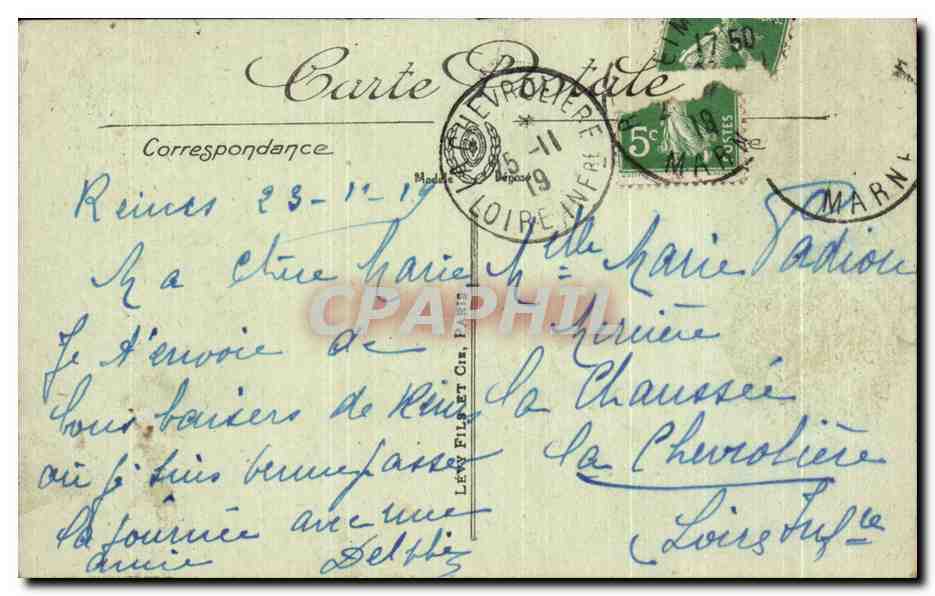 Carte Postale
Correspondance
Modèle Déposé
LA CHEVROLIERE
* 
5 -11
19
LOIRE INFRE
17 50
5c
POSTES
19
MARN
MARNE
Reims 23-11-19
Ma Chère Marie
Je t'envoie de
bons baisers de Reims
où je suis venue passer
la journée avec une
amie Delphi
LÉVY FILS ET CIE, PARIS
CPAPHIL
Melle Marie Padiou
la Chaussée
La Chevrolière
Loire Infre